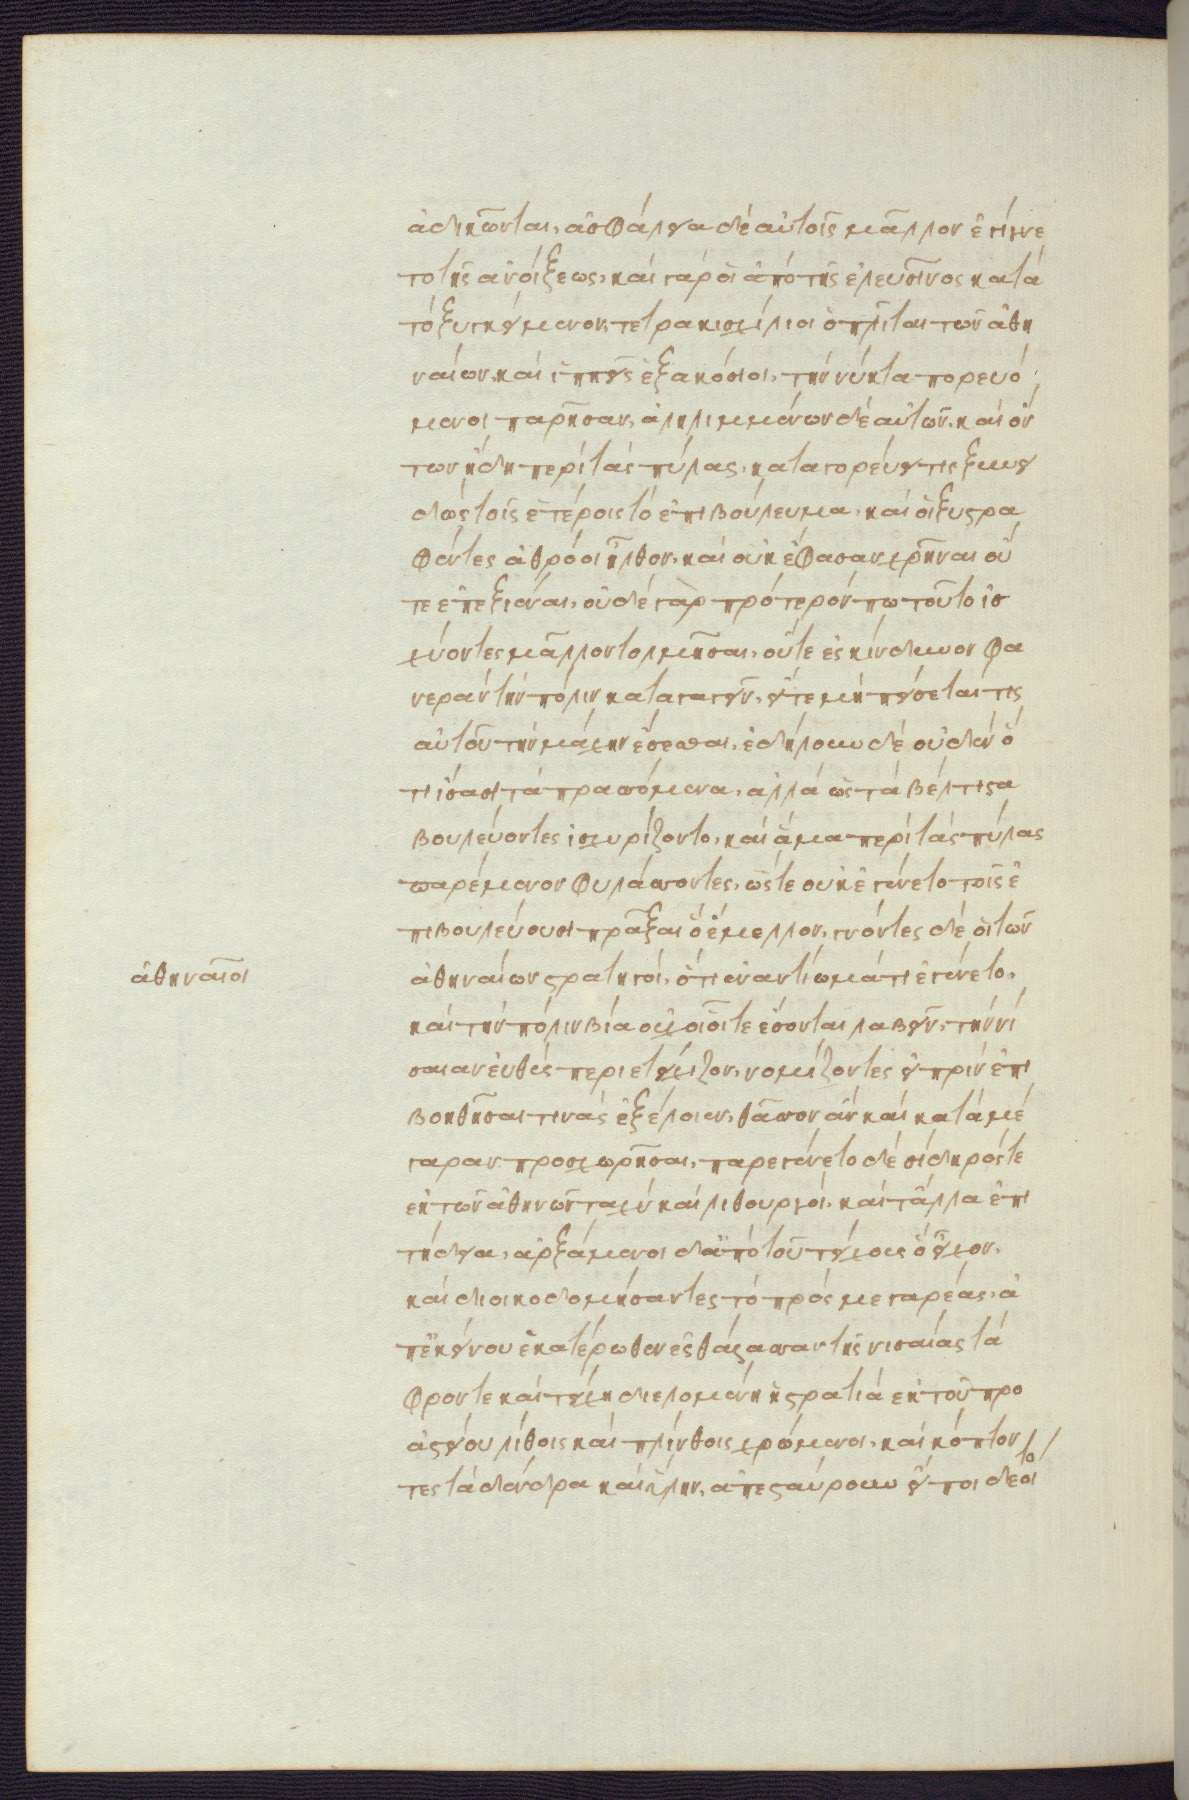 ἀδικῶνται, ἀσφάλεια δὲ αὐτοῖς μᾶλλον ἐγίγνε
το τῆς ἀνοίξεως, καὶ γὰρ οἱ ἀπὸ τῆς ἐλευσῖνος κατὰ
τὸ ξυγκείμενον, τετρακισχίλιοι ὁπλῖται τῶν ἀθη
ναίων, καὶ ἱππεῖς ἑξακόσιοι, τὴν νύκτα πορευό
μενοι παρῆσαν, ἀληλιμμένων δὲ αὐτῶν, καὶ ὄν
των ἤδη περὶ τὰς πύλας, καταγορεύει τις ξυνει
δὼς τοῖς ἑτέροις τὸ ἐπιβούλευμα, καὶ οἳ ξυστρα
φέντες ἀθρόοι ἦλθον, καὶ οὐκ ἔφασαν χρῆναι οὔ
τε ἐπεξιέναι, οὐδὲ γὰρ πρότερόν πω τοῦτο ἰσ
χύοντες μᾶλλον τολμῆσαι, οὔτε ἐς κίνδυνον φα
νερὰν τὴν πόλιν καταγαγεῖν, εἴτε μὴ πείσεταί τις
αὐτοῦ τὴν μάχην ἔσεσθαι, ἐδήλουν δὲ οὐδὲν ὅ
τι ἴσασι τὰ πρασσόμενα, ἀλλὰ ὡς τὰ βέλτιστα
βουλεύοντες ἰσχυρίζοντο, καὶ ἅμα περὶ τὰς πύλας
παρέμενον φυλάσσοντες, ὥστε οὐκ ἐγένετο τοῖς ἐ
πιβουλεύουσι πρᾶξαι ὃ ἔμελλον, γνόντες δὲ οἱ τῶν
ἀθηναῖοι
ἀθηναίων στρατηγοί, ὅτι ἐναντίωμά τι ἐγένετο,
καὶ τὴν πόλιν βίᾳ οὐχ οἷοί τε ἔσονται λαβεῖν, τὴν νί
σαιαν εὐθὺς περιετείχιζον, νομίζοντες εἰ πρὶν ἐπι
βοηθῆσαι τινὰς ἐξέλοιεν, θᾶσσον ἂν καὶ κατὰ μέ
γαραν προσχωρῆσαι, παρεγένετο δὲ σίδηρός τε
ἐκ τῶν ἀθηνῶν ταχὺ καὶ λιθουργοί, καὶ τἄλλα ἐπι
τήδεια, ἀρξάμενοι δἀπὸ τοῦ τείχους ὃ εἶχον,
καὶ διοικοδομήσαντες τὸ πρὸς μεγαρέας, ἀ
πἐκείνου ἑκατέρωθεν ἐς θάλασσαν τῆς νισαίας τά
φρον τε καὶ τείχη διελομένη ἡ στρατιὰ ἐκ τοῦ προ
αστείου λίθοις καὶ πλίνθοις χρώμενοι, καὶ κόπτον
τες τὰ δένδρα καὶ ὕλην, ἀπεσταύρουν εἴ πῃ δέοιτο